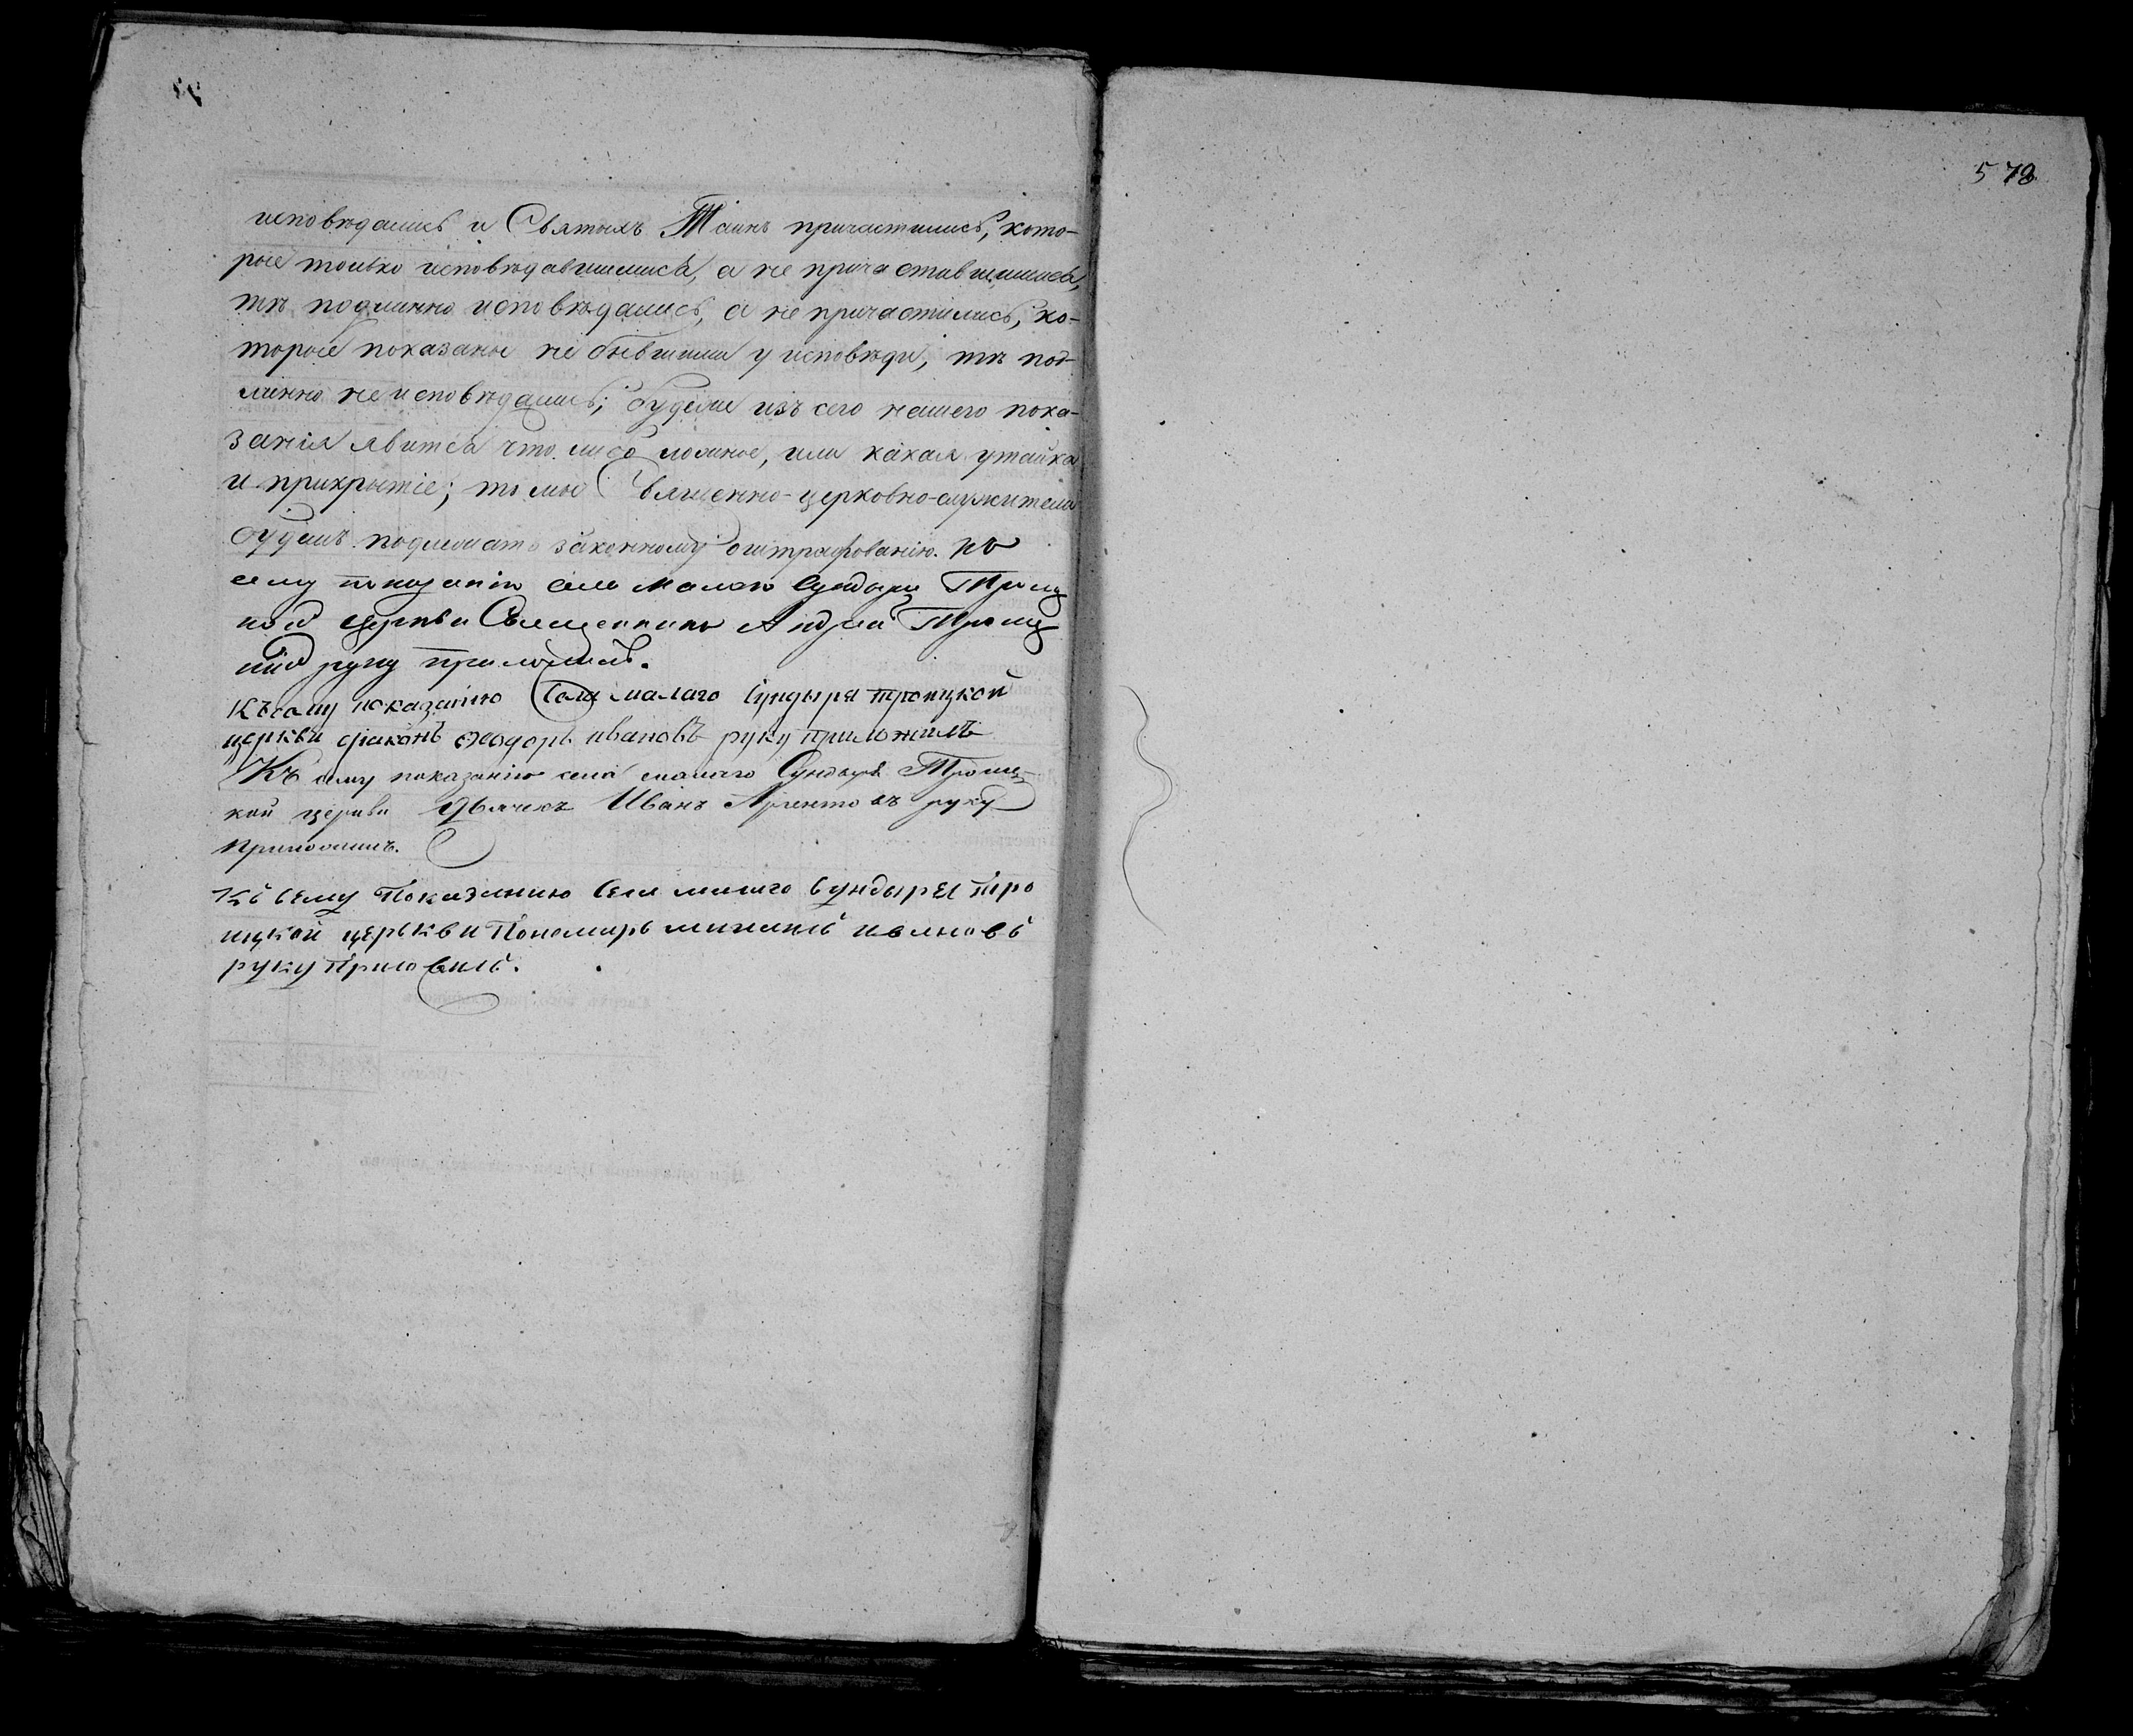 578
исповѣдались и Святыхъ Таинъ причастились, кото-
рые только исповѣдавшимися, а не причастившимися,
тѣ подлинно исповѣдались, а не причастились, ко-
торые показаны не бывшими у исповѣди, тѣ под-
линно не исповѣдались; будеже изъ сего нашего пока-
занія явится что либо ложное, или какая утайка
и прикрытіе; то мы Священно-церковно-служители
будемъ подлежать законному оштрафованію. Къ
сему показанію села Малаго Сундыря Троиц
кой церкви Священникъ Андрей Троиц
кій руку приложилъ.
Къ сему показанію Села малаго Сундыря троицкой
церкви діаконъ Ѳеодоръ ивановъ руку приложилъ
Къ сему показанію села малаго Сундыря Троиц-
кой церкви Дьячекъ Иванъ руку
приложилъ.
Къ сему Показанию Села малаго Сундыря Тро
ицкой церькви Пономарь михаилъ ивановъ
руку Приложилъ.